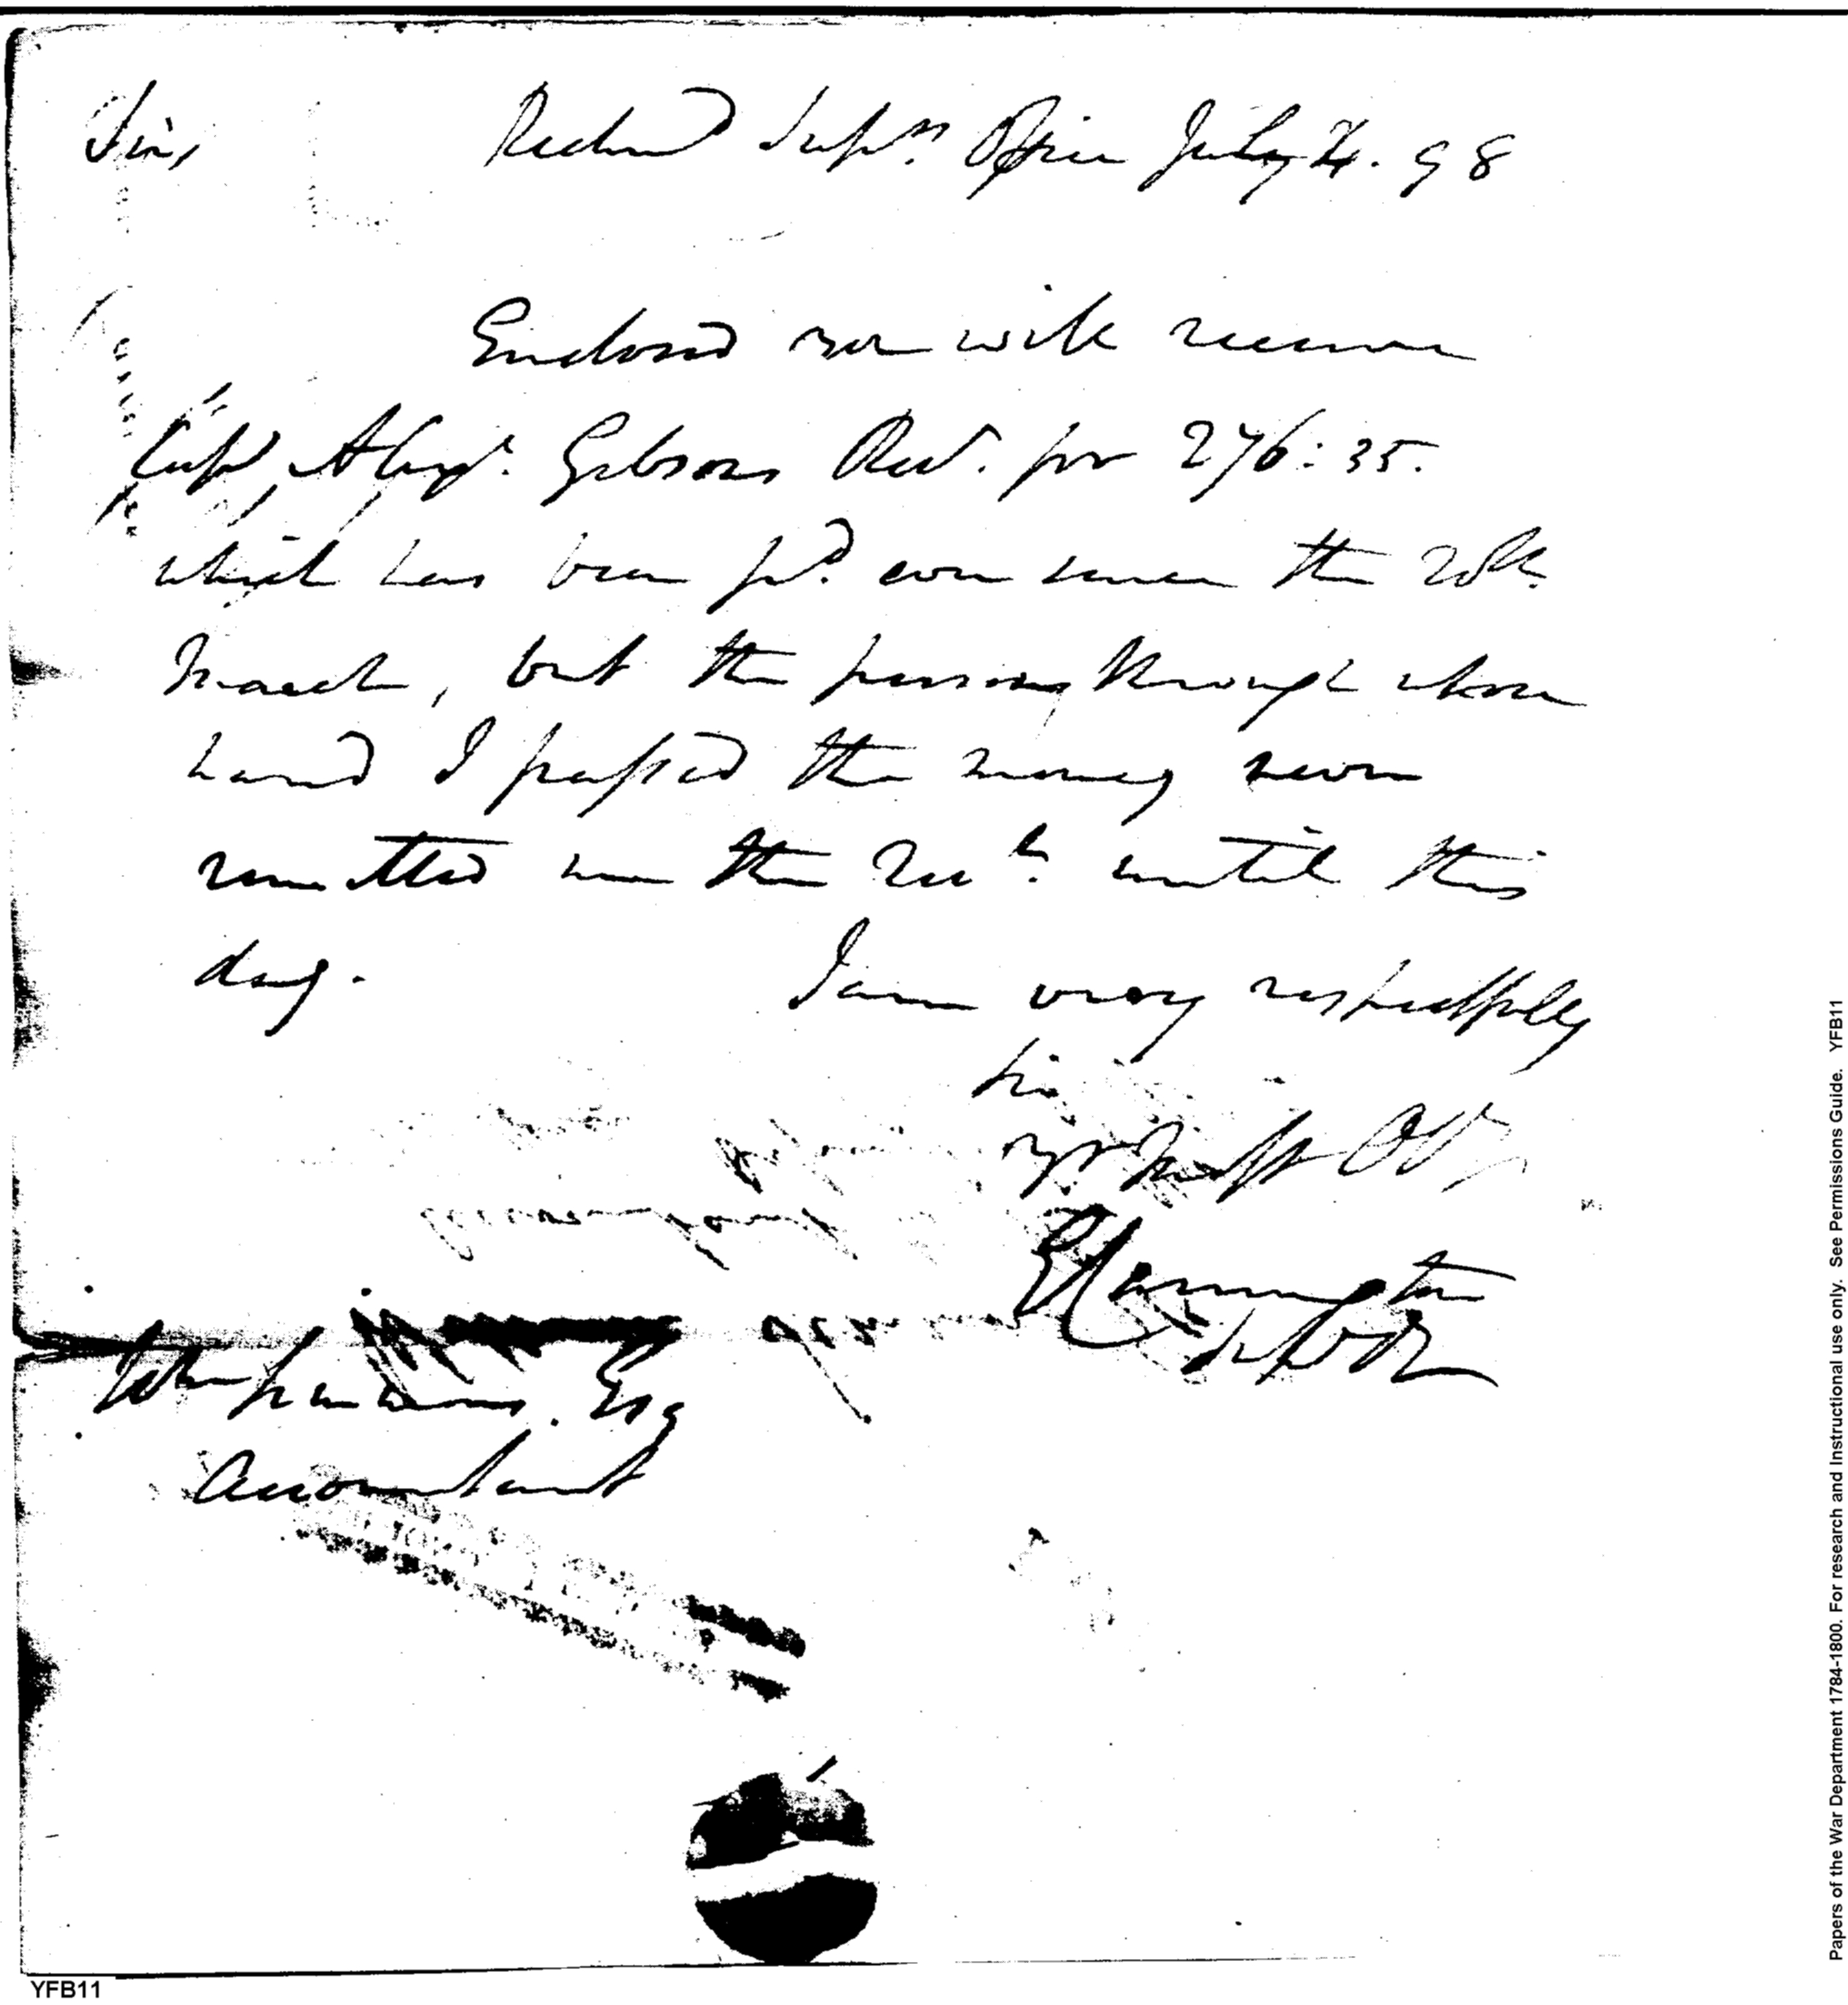 Sir, Richmd Suprs Office July 4. 98
Enclosed you will receive
Capt Alexr. Gibsons Rect. for 276:35.
which has been pd. ever since the 20th
March, but the person through whose
hand I passed the money never
remitted me the Rect. until this
day. I am very respectfully
Sir
yr. Most Obt
E Carrington
John Simmons. Esq
Accountant
YFB11
Papers of the War Department 1784-1800. For research and Instructional use only. See Permissions Guide. YFB11